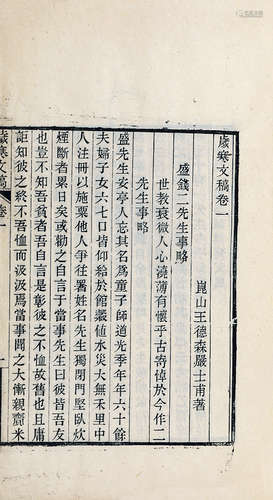 歲寒文稿卷一
崑山王德森嚴士甫著
盛錢二先生事略
世教衰微人心澆薄有懷乎古寄悼於今作二
先生事略
盛先生安亭人忘其名爲童子師道光季年年六十餘
夫婦子女六七口皆仰給於館叢値水災大無禾里中
人注冊以施粟他人爭往署姓名先生獨閉門堅臥炊
煙斷者累日矣或勸之自言于當事先生曰彼皆吾友
也豈不知吾貧者吾自言是彰彼之不恤故舊也且庸
詎知彼之終不吾恤而汲汲爲當事聞之大慚親齎米
歲寒文稿
卷一
一